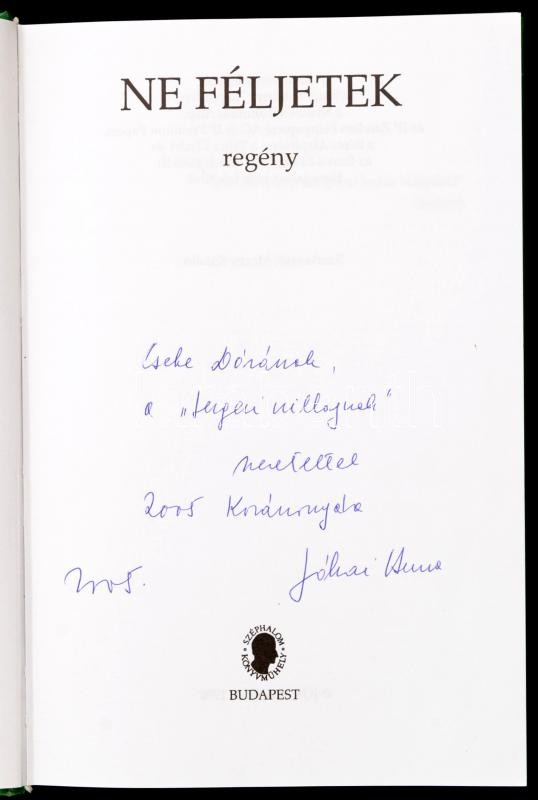 NE FÉLJETEK
regény
Cseke Dórának,
a „tengeri csillagnak"
szeretettel
2005 Karácsonyán
2005. Jókai Anna
SZÉPHALOM KÖNYVMŰHELY
BUDAPEST